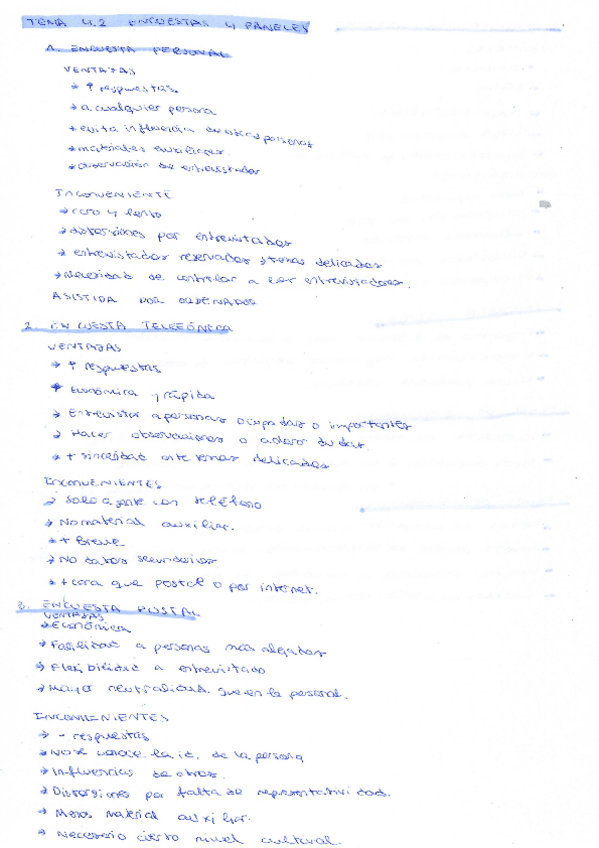 TEMA 4.2 ENCUESTAS Y PANELES
1. ENCUESTA PERSONAL
VENTAJAS
→ ↑ respuestas.
→ a cualquier persona
→ evita influencia de otras personas
→ materiales auxiliares.
→ observación de entrevistador
INCONVENIENTE
→ caro y lento
→ distorsiones por entrevistador
→ entrevistados reservados y temas delicados
→ Necesidad de controlar a los entrevistadores.
ASISTIDA POR ORDENADOR
2. ENCUESTA TELEFÓNICA
VENTAJAS
→ ↑ respuestas
→ Económica y rápida
→ Entrevistar a personas ocupadas o importantes
→ Hacer observaciones o aclarar dudas
→ + sinceridad ante temas delicados
INCONVENIENTES
→ Solo a gente con teléfono
→ No material auxiliar.
→ + Breve
→ No datos secundarios
→ + cara que postal o por internet.
3. ENCUESTA POSTAL
VENTAJAS
→ Económica
→ Facilidad a personas más alejadas
→ Flexibilidad a entrevistado
→ Mayor neutralidad que en la personal.
INCONVENIENTES
→ - respuestas
→ No se conoce la id. de la persona
→ Influencias de otros.
→ Distorsiones por falta de representatividad.
→ Menos material auxiliar.
→ Necesario cierto nivel cultural.